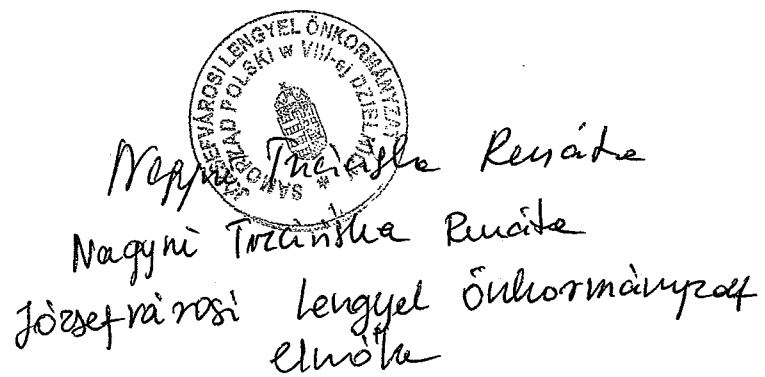 JÓZSEFVÁROSI LENGYEL ÖNKORMÁNYZAT
SAMORZĄD POLSKI w VIII-ej DZIELNICY
Nagyné Trzcińska Renáta
Nagyné Trzcińska Renáta
Józsefvárosi Lengyel Önkormányzat
elnöke